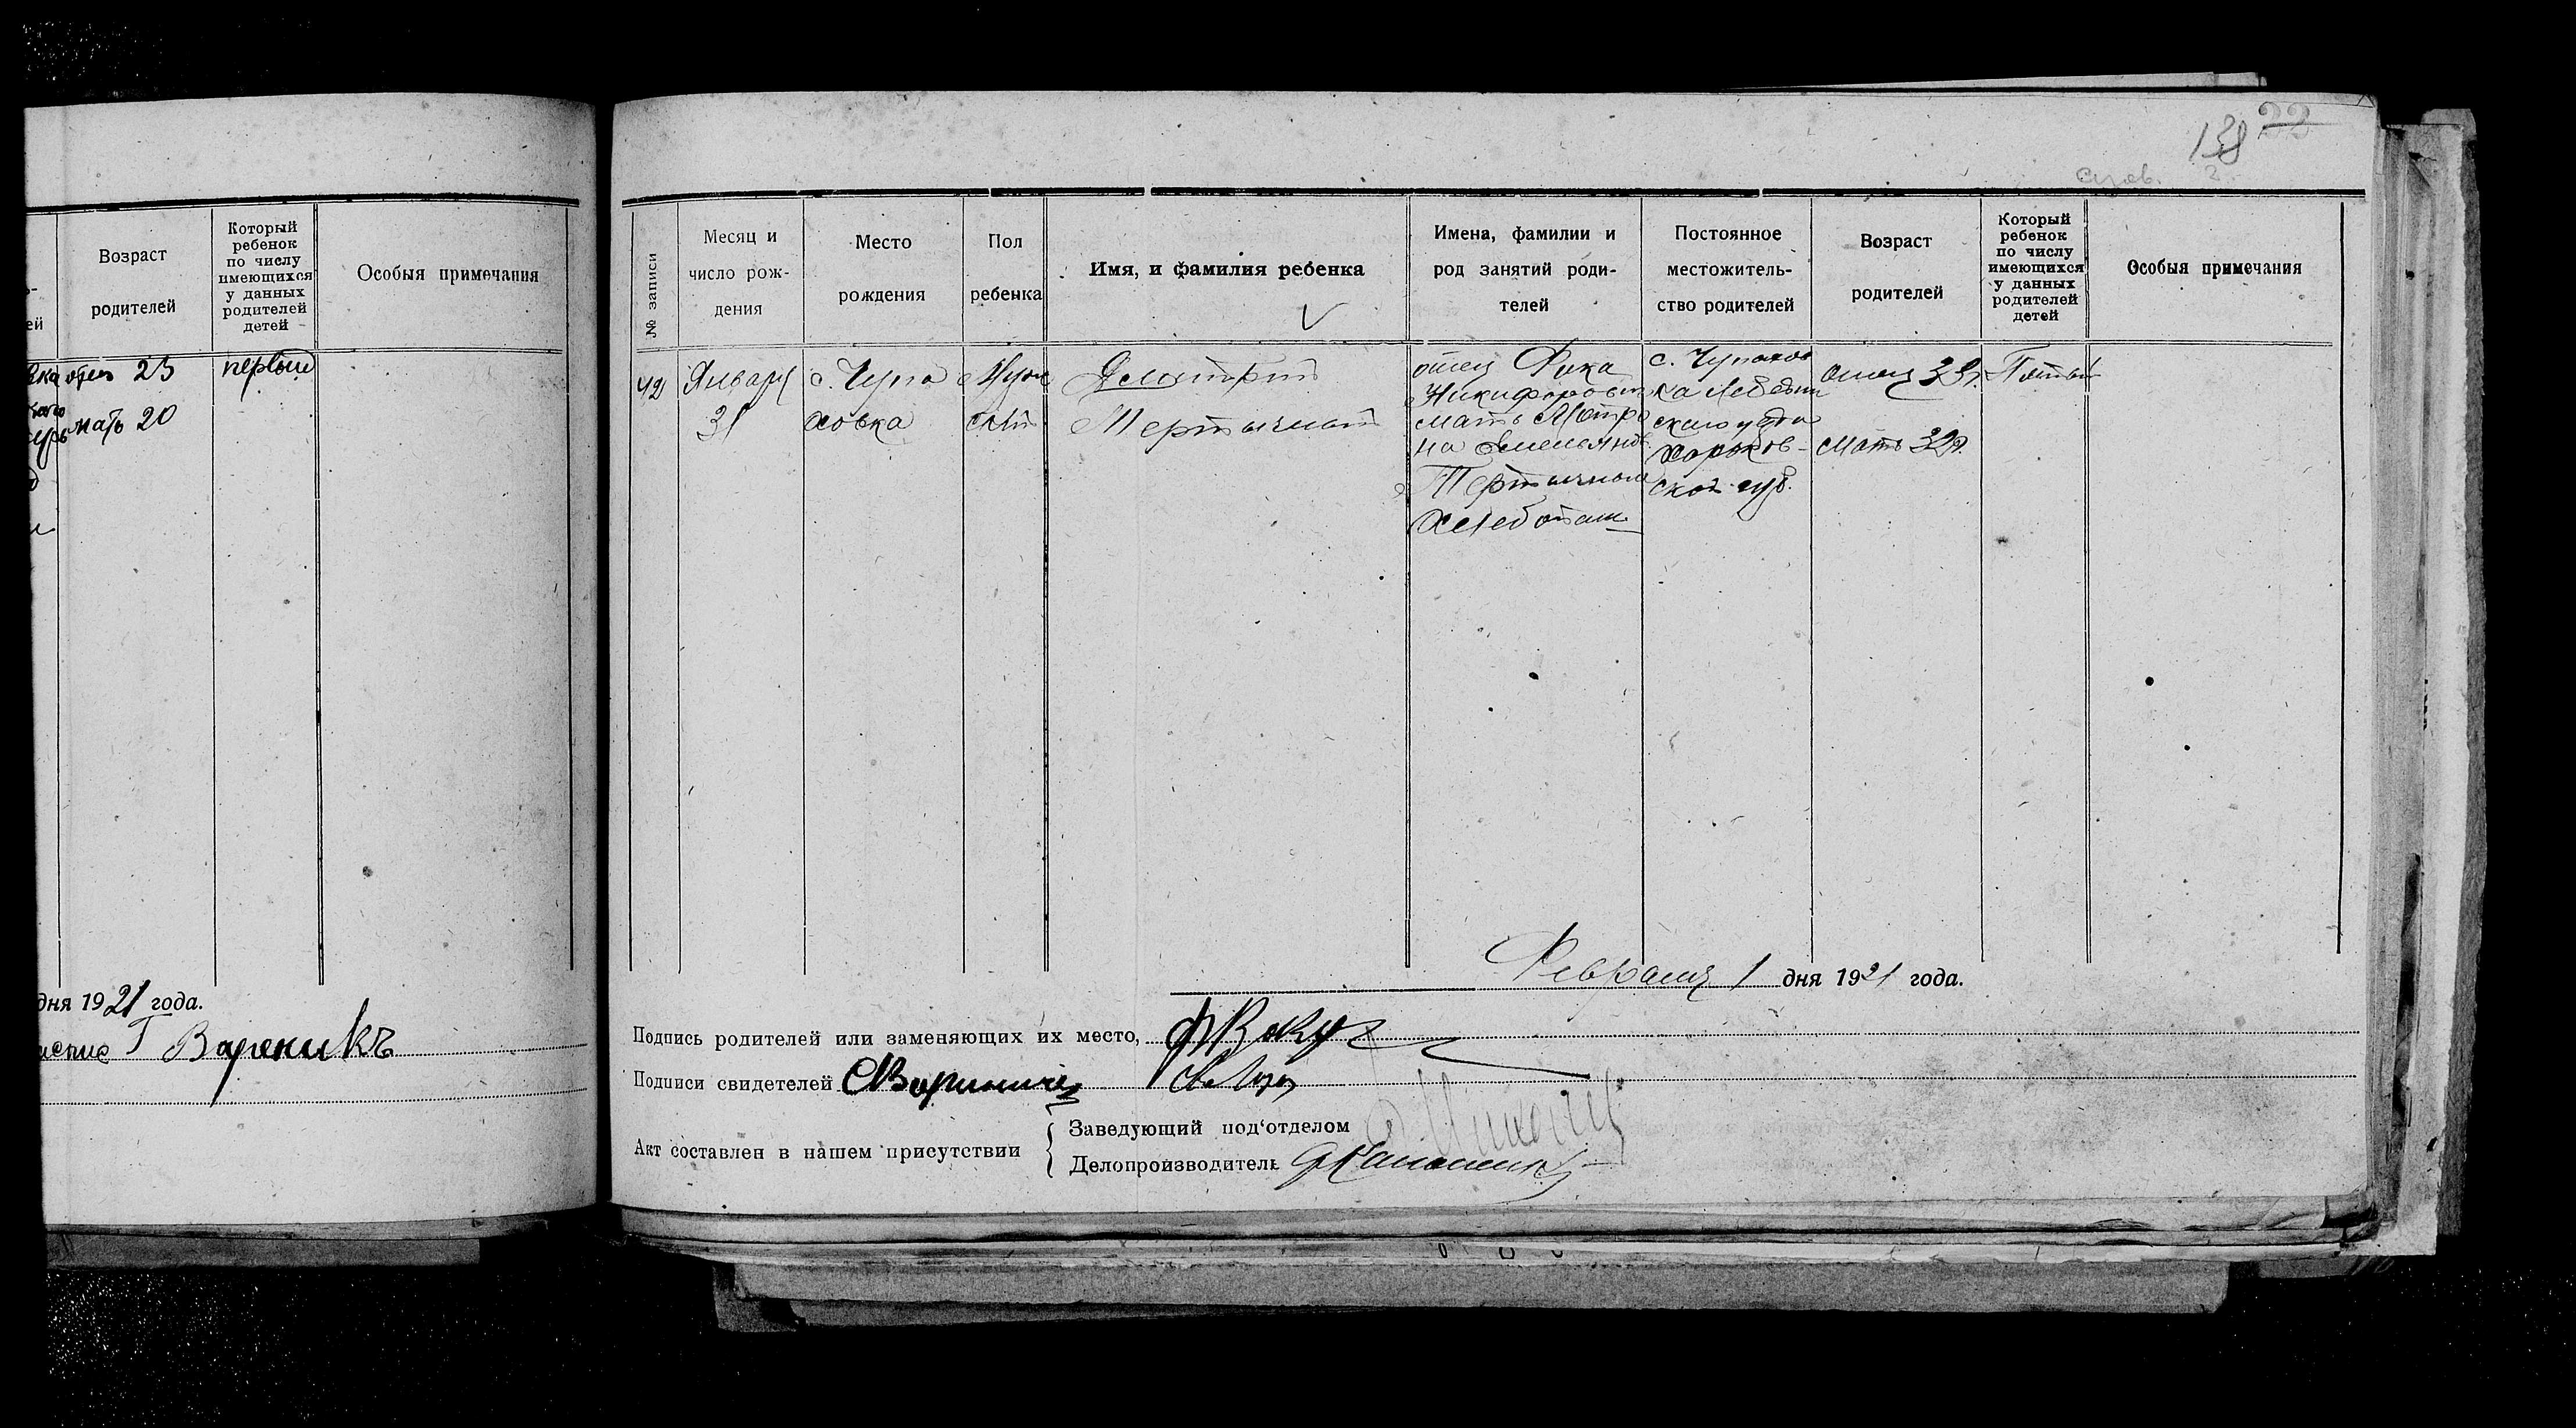 138 22
Возраст
родителей
Который
ребенок
по числу
имеющихся
у данных
родителей
детей
Особыя примечания
отец 23
первый
мать 20
дня 1921 года.
Вареникъ
№ записи
Месяц и
число рож-
дения
Место
рождения
Пол
ребенка
Имя, и фамилия ребенка
Имена, фамилии и
род занятий роди-
телей
Постоянное
местожитель-
ство родителей
Возраст
родителей
Который
ребенок
по числу
имеющихся
у данных
родителей
детей
Особыя примечания
42
Января
31
с. Чупа
ховка
Муж
ской
Дмитрий
Тертычный
отец Фока
Никифорович
мать Матро
на Емельянов
Тертычные
Хлебопаш
с. Чупахов
ка Лебедин
ского уезда
Харьков-
ской губ.
отец 33г.
мать 32г.
Пятый
Февраля 1 дня 1921 года.
Подпись родителей или заменяющих их место,
Подписи свидетелей
Акт составлен в нашем присутствии
Заведующий под‘отделом
Делопроизводитель